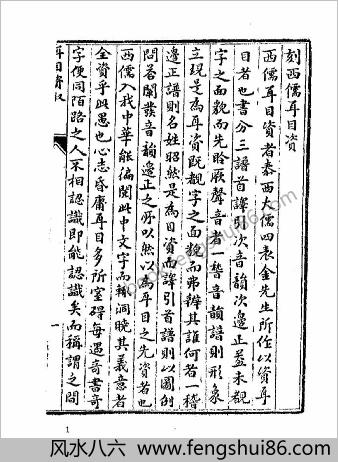 刻西儒耳目資
西儒耳目資者泰西大儒四表金先生所作以資耳
目者也書分三譜首譯引次音韻次邊正葢未覩
字之面貌而先聆厥聲音者一稽音韻譜則形象
立現是為耳資旣覩字之面貌而弗辨其誰何者一稽
邊正譜則名姓昭然是為目資而譯引首譜則以圖例
問荅闡發音韻邊正之所以然以為耳目之先資者也
西儒入我中華能徧閱此中文字而輒洞曉其義意者
全資乎此愚也心志昏庸耳目多所窒碍每遇奇書奇
字便同陌路之人不相認識即能認識矣而稱謂之間
耳目資叙
一
1
风水八六 – www.fengshui86.com